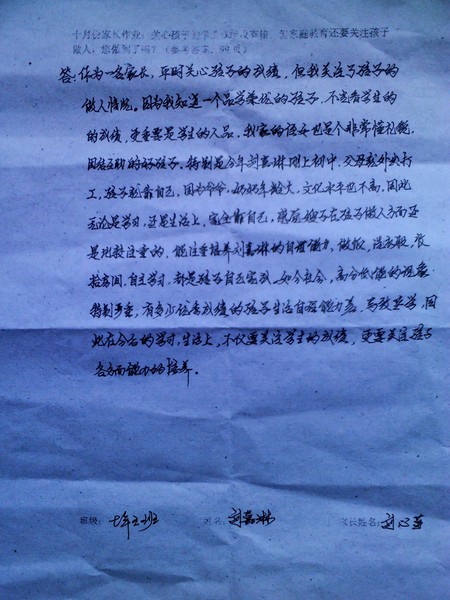 十月份家长作业：关心孩子的学习
家庭教育还要关注孩子
做人，您做到了吗？（参考答案：99页）
答：作为一名家长，平时关心孩子的成绩，但我关注了孩子的
做人情况。因为我知道一个品学兼优的孩子，不光看学生的
的成绩，更重要是学生的人品，我家的孩子也是个非常懂礼貌，
团结互助的好孩子。特别是今年刘嘉淋刚上初中，父母就外出打
工，孩子就靠自己，因为爷爷，奶奶年龄大，文化水平也不高，因此
无论是学习，还是生活上，完全靠自己，我原孩子在孩子做人方面还
是比较注重的，能注重培养刘嘉淋的自理能力，做饭，洗衣服，收
拾房间，自主学习，都是孩子自己完成，如今社会，高分低能的现象
特别严重，有多少优秀成绩的孩子生活自理能力差，导致辍学，因
此在今后的学习，生活上，不仅要关注学生的成绩，更要关注孩子
各方面能力的培养。
班级：七年五班 姓名：刘嘉淋 家长姓名：刘